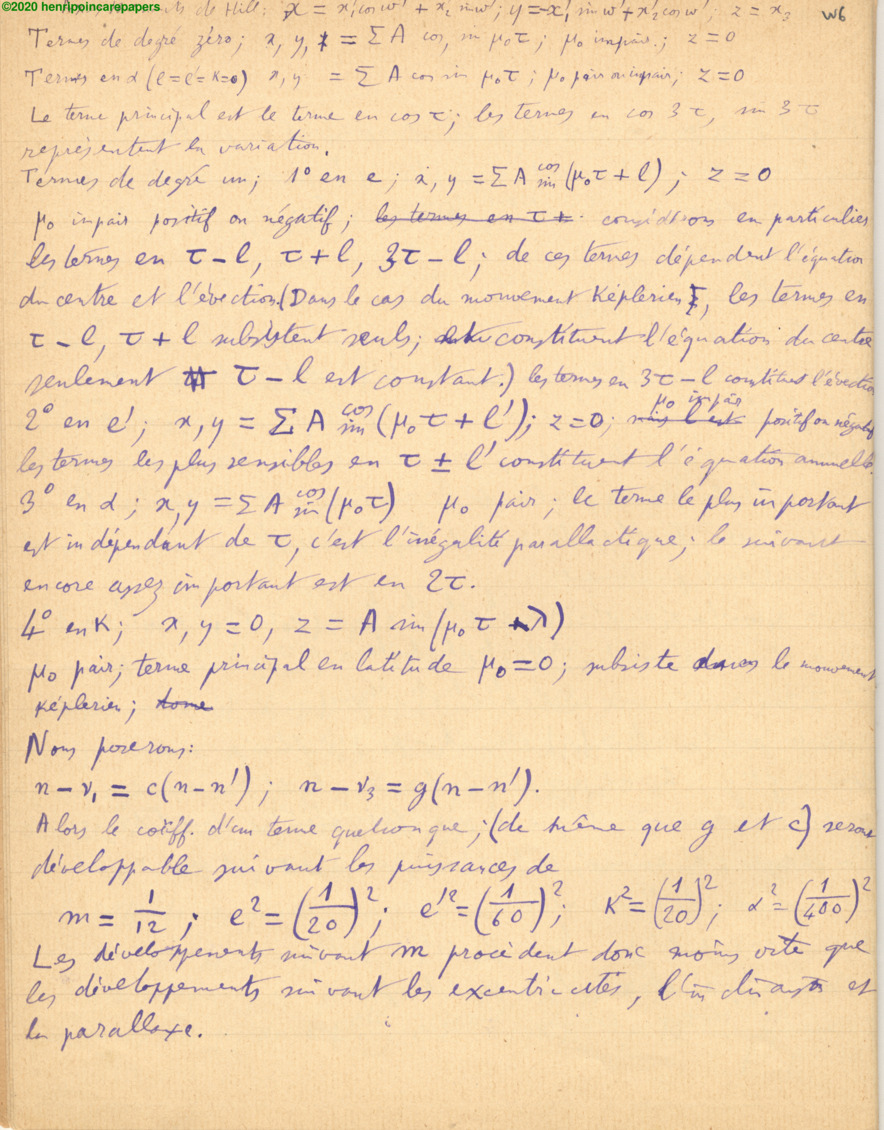 ©2020 henripoincarepapers
W6
de Hill: x = x'₁ cos w' + x'₂ sin w'; y = -x'₁ sin w' + x'₂ cos w'; z = x₃
Termes de degré zéro; x, y, = ΣA cos, sin μ₀τ; μ₀ impair; z=0
Termes en α (e=e'=K=0) x, y = ΣA cos sin μ₀τ; μ₀ pair ou impair; z=0
Le terme principal est le terme en cos τ; les termes en cos 3τ, sin 3τ
représentent la variation.
Termes de degré un; 1° en e; x, y = ΣA cos sin (μ₀τ + l); z=0
μ₀ impair positif ou négatif; les termes en τ + considérons en particulier
les termes en τ-l, τ+l, 3τ-l; de ces termes dépendent l'équation
du centre et l'évection. (Dans le cas du mouvement Képlerien, les termes en
τ-l, τ+l subsistent seuls; constituent l'équation du centre
seulement τ-l est constant.) les termes en 3τ-l constituent l'évection
2° en e'; x, y = ΣA cos sin (μ₀τ + l'); z=0; μ₀ impair positif ou négatif
les termes les plus sensibles en τ ± l' constituent l'équation annuelle.
3° en α; x, y = ΣA cos sin (μ₀τ) μ₀ pair; le terme le plus important
est indépendant de τ, c'est l'inégalité parallactique; le suivant
encore assez important est en 2τ.
4° en K; x, y = 0, z = A sin (μ₀τ + λ)
μ₀ pair; terme principal en latitude μ₀=0; subsiste dans le mouvement
képlerien;
Nous poserons:
n-ν₁ = c(n-n'); n-ν₃ = g(n-n').
Alors le coëff. d'un terme quelconque; (de même que g et c) sera
développable suivant les puissances de
m = 1/12; e² = (1/20)²; e'² = (1/60)²; K² = (1/20)²; α² = (1/400)²
Les développements suivant m procèdent donc moins vite que
les développements suivant les excentricités, l'inclinaison et
la parallaxe.